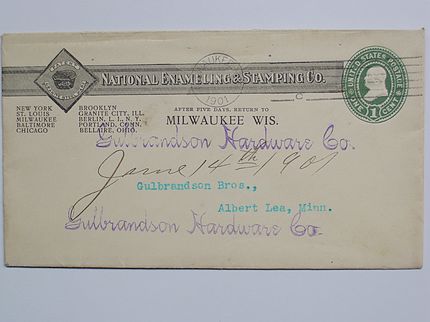 NATIONAL ENAMELING & STAMPING CO.
UNITED STATES POSTAGE
ONE 1 CENT
1901
C
NEW YORK
ST. LOUIS
MILWAUKEE
BALTIMORE
CHICAGO
BROOKLYN
GRANITE CITY, ILL.
BERLIN, L. I., N. Y.
PORTLAND, CONN.
BELLAIRE, OHIO.
AFTER FIVE DAYS, RETURN TO
MILWAUKEE WIS.
Gulbrandson Hardware Co.
June 14th 1901
Gulbrandson Bros.,
Albert Lea, Minn.
Gulbrandson Hardware Co.